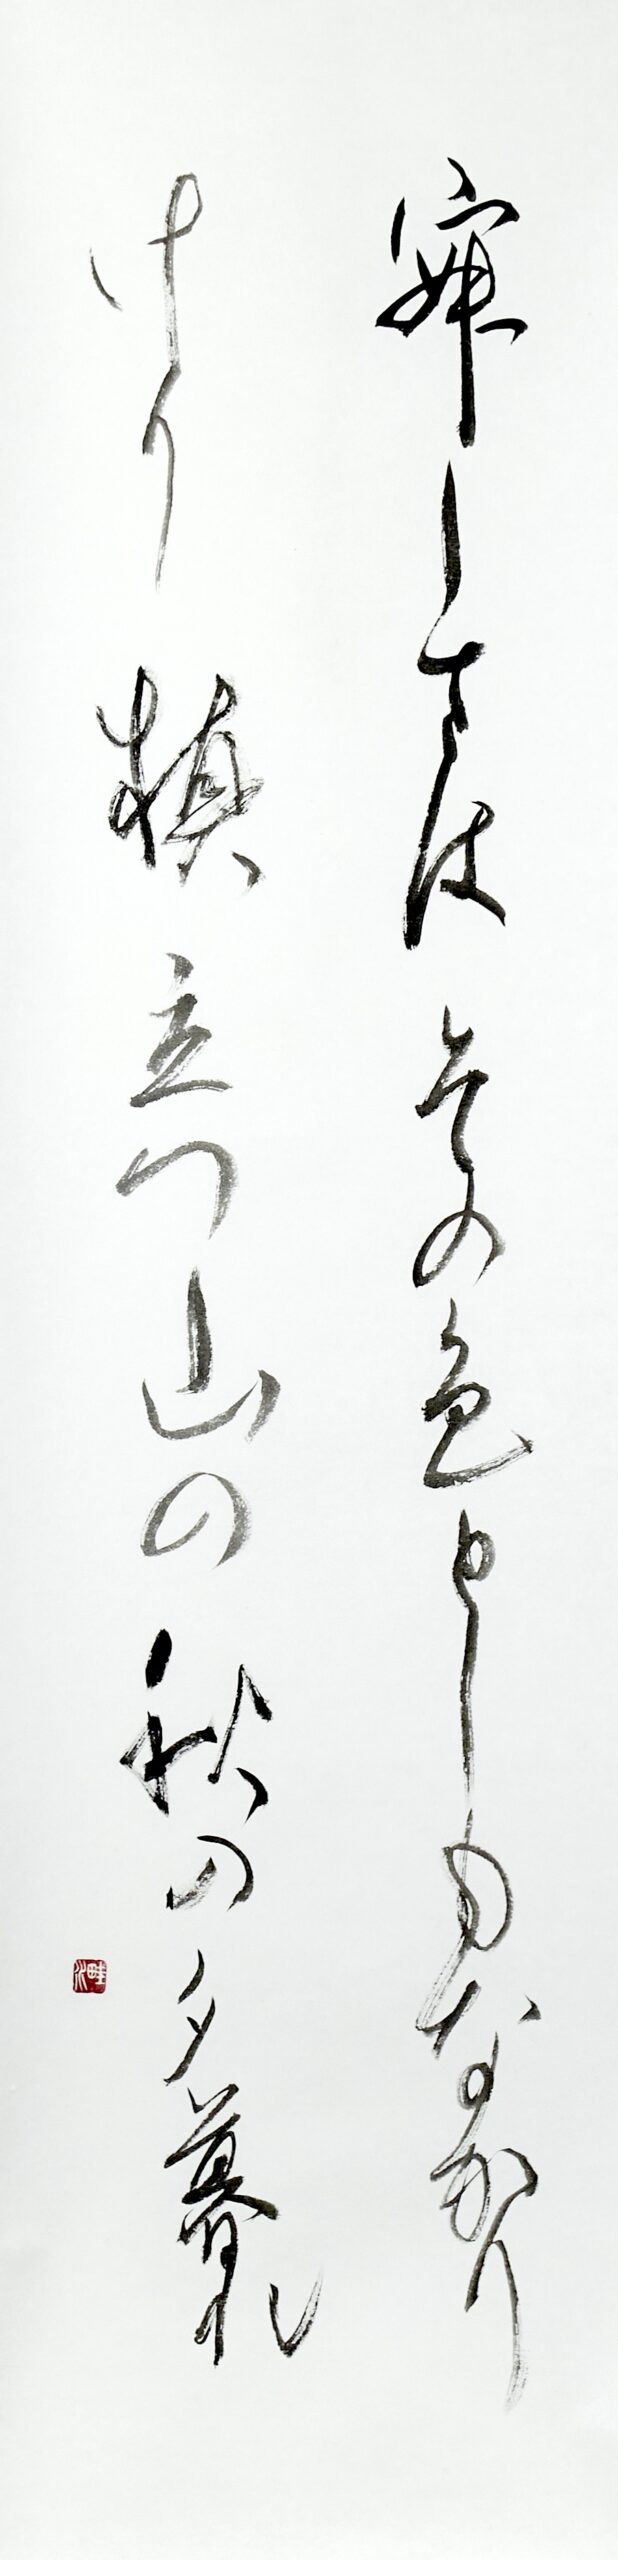 寂しさはその色としもなかり
けり槙立つ山の秋の夕暮れ